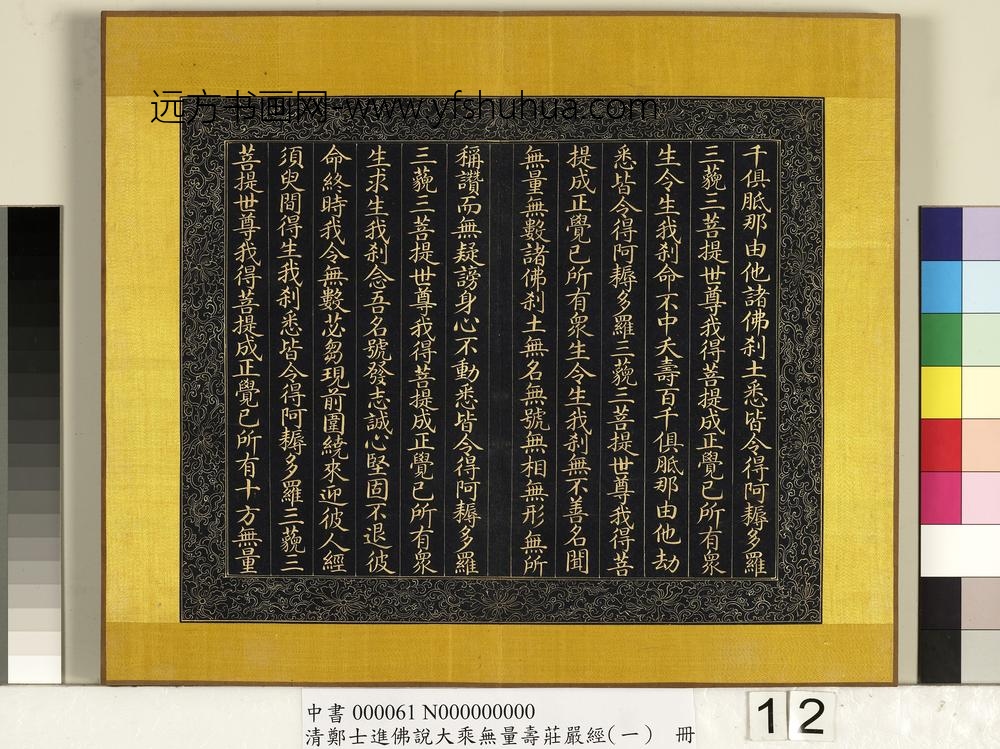 远方书画网-www.yfshuhua.com
千俱胝那由他諸佛刹土悉皆令得阿耨多羅
三藐三菩提世尊我得菩提成正覺已所有衆
生令生我刹命不中夭壽百千俱胝那由他劫
悉皆令得阿耨多羅三藐三菩提世尊我得菩
提成正覺已所有衆生令生我刹無不善名聞
無量無數諸佛刹土無名無號無相無形無所
稱讚而無疑謗身心不動悉皆令得阿耨多羅
三藐三菩提世尊我得菩提成正覺已所有衆
生求生我刹念吾名號發志誠心堅固不退彼
命終時我令無數苾芻現前圍繞來迎彼人經
須臾間得生我刹悉皆令得阿耨多羅三藐三
菩提世尊我得菩提成正覺已所有十方無量
中書 000061 N000000000
清鄭士進佛說大乘無量壽莊嚴經(一) 冊
12